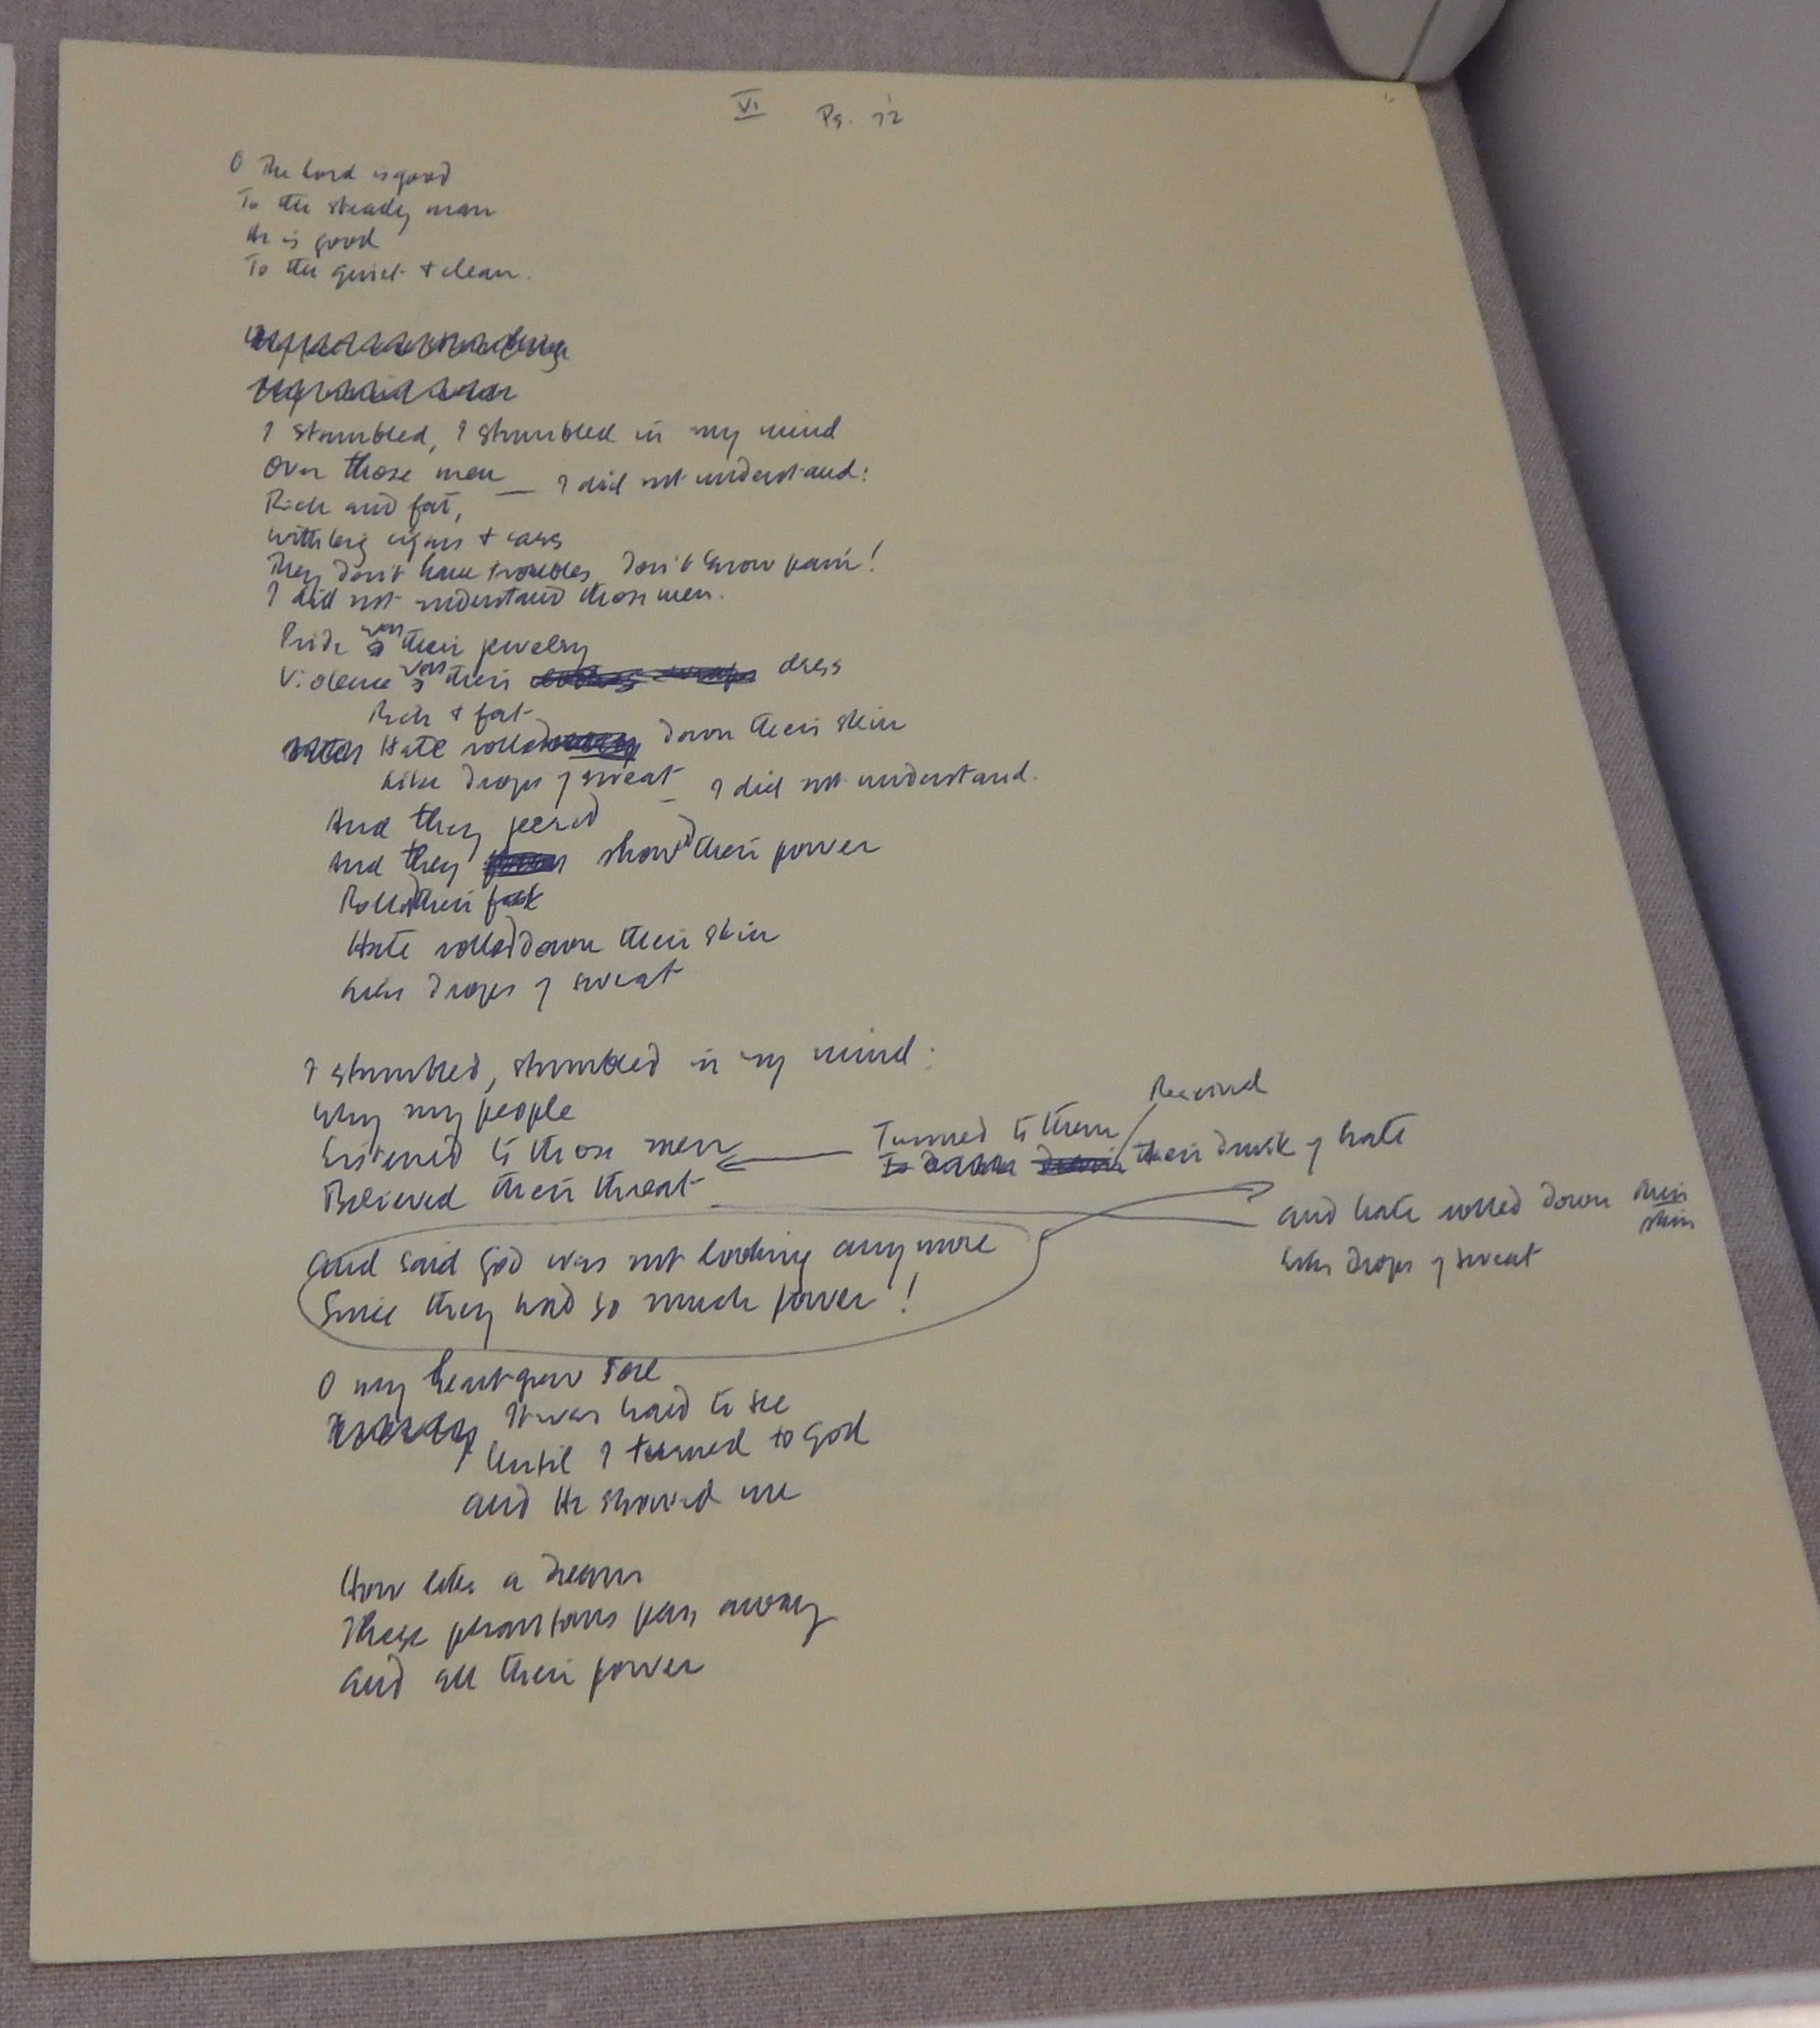 VI Ps. 72
O The Lord is good
To the steady man
He is good
To the quiet + clean.
I stumbled, I stumbled in my mind
Over those men — I did not understand:
Rich and fat,
with big cigars + cars
They don't have troubles, don't know pain!
I did not understand those men.
Pride was their jewelry
Violence was their dress
Rich + fat
Hate rolled down their skin
Like drops of sweat — I did not understand.
And they jeered
And they showed their power
Rolled their
Hate rolled down their skin
Like drops of sweat
I stumbled, stumbled in my mind:
Why my people
Received
Turned to them
Listened to those men
their drink of hate
Believed their threat
and hate rolled down their skin
Like drops of sweat
And said God was not looking anymore
Since they had so much power!
O my heart grew sore
It was hard to see
Until I turned to God
and He showed me
How like a dream
These phantoms pass away
and all their power